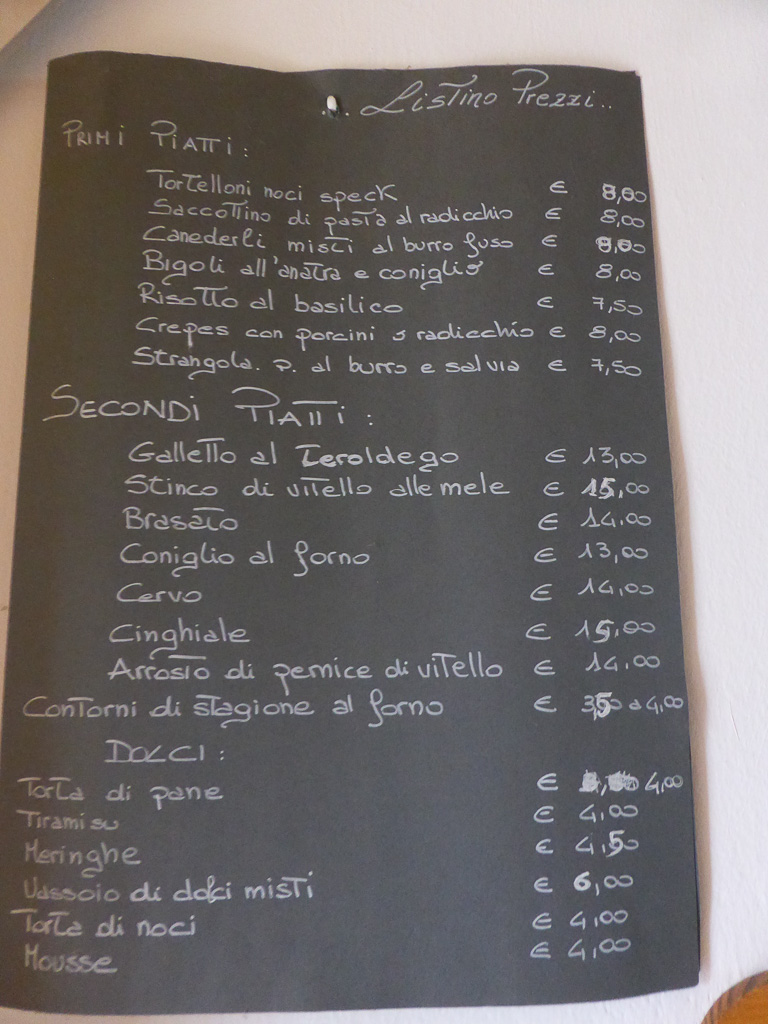 Listino Prezzi..
PRIMI PIATTI:
Tortelloni noci speck € 8,00
Saccottino di pasta al radicchio € 8,00
Canederli misti al burro fuso € 8,00
Bigoli all'anatra e coniglio € 8,00
Risotto al basilico € 7,50
Crepes con porcini o radicchio € 8,00
Strangola. P. al burro e salvia € 7,50
SECONDI PIATTI:
Galletto al Teroldego € 13,00
Stinco di vitello alle mele € 15,00
Brasato € 14,00
Coniglio al forno € 13,00
Cervo € 14,00
Cinghiale € 15,00
Arrosto di pernice di vitello € 14,00
Contorni di stagione al forno € 3,50 a 4,00
DOLCI:
Torta di pane € 4,00
Tiramisu € 4,00
Meringhe € 4,50
Vassoio di dolci misti € 6,00
Torta di noci € 4,00
Mousse € 4,00